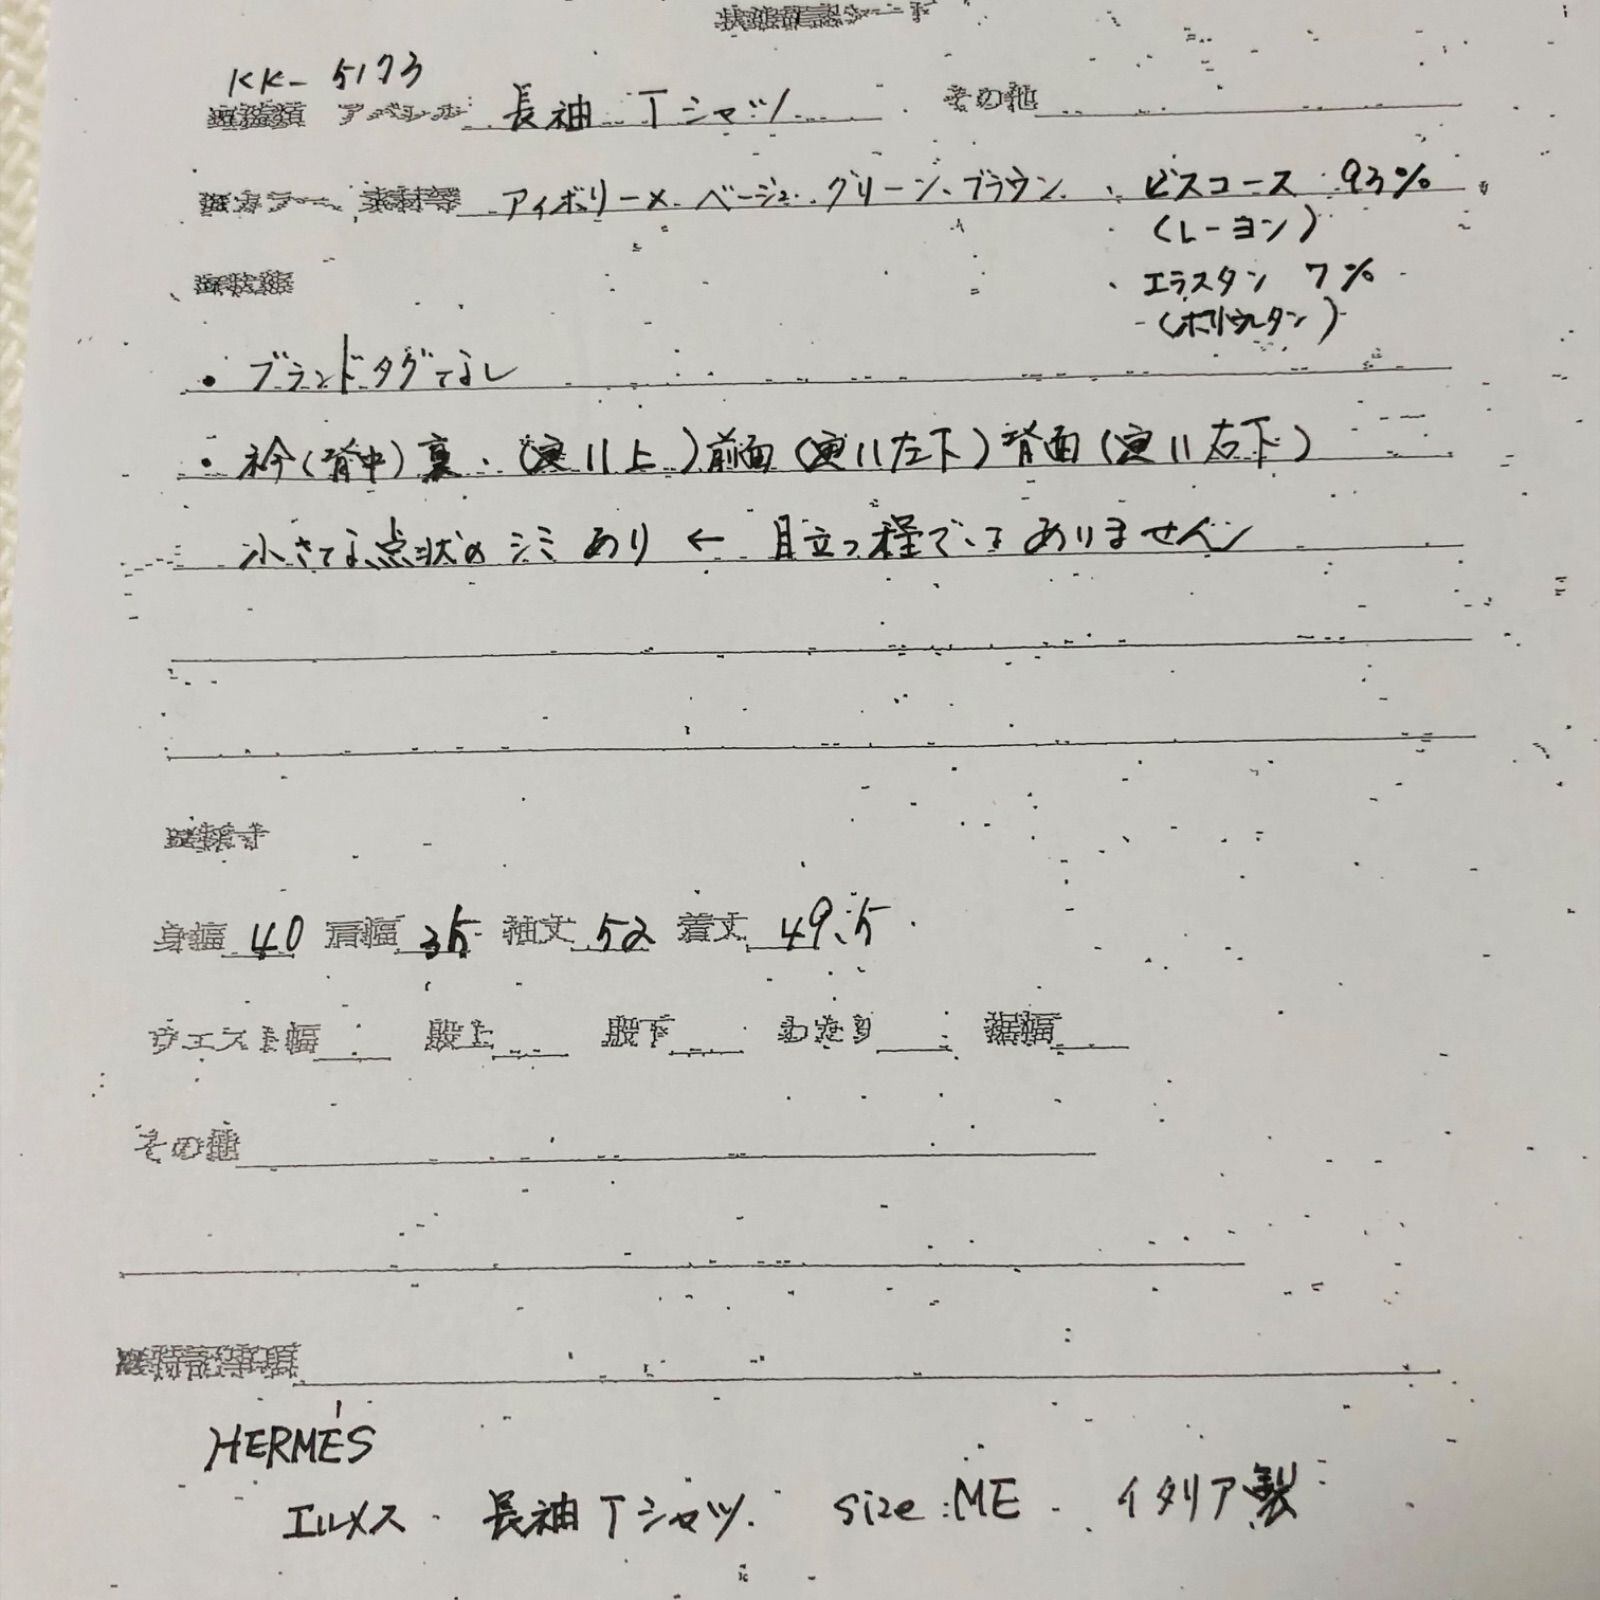 状態確認シート
KK-5173
アパレル 長袖 Tシャツ その他
カラー、素材等 アイボリー× ベージュ・グリーン・ブラウン ・ビスコース 93%
(レーヨン)
・エラスタン 7%
(ポリウレタン)
・ブランドタグなし
・衿(背中)裏・(向って上)前面(向って左下)背面(向って右下)
小さな点状のシミあり ← 目立つ程ではありません
採寸
身幅 40 肩幅 35 袖丈 52 着丈 49.5
ウエスト幅 股上 股下 わたり 裾幅
その他
特記事項
HERMÈS
エルメス・長袖Tシャツ. size:ME. イタリア製